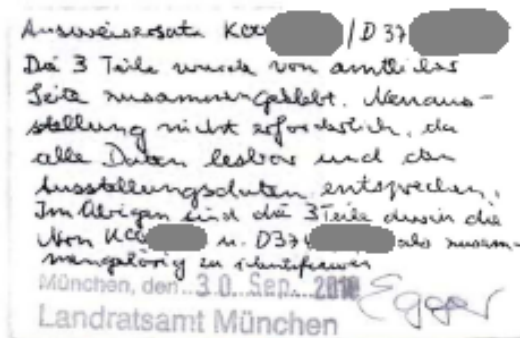 Ausweisersatz KC / D 37
Die 3 Teile wurde von amtlicher
Seite zusammengeklebt. Neuaus-
stellung nicht erforderlich, da
alle Daten lesbar und den
Ausstellungsdaten entsprechen.
Im Übrigen sind die 3 Teile durch die
Nrn KC u. D37 als zusam-
mengehörig zu identifizieren
München, den 30. Sep. 2010
Egger
Landratsamt München